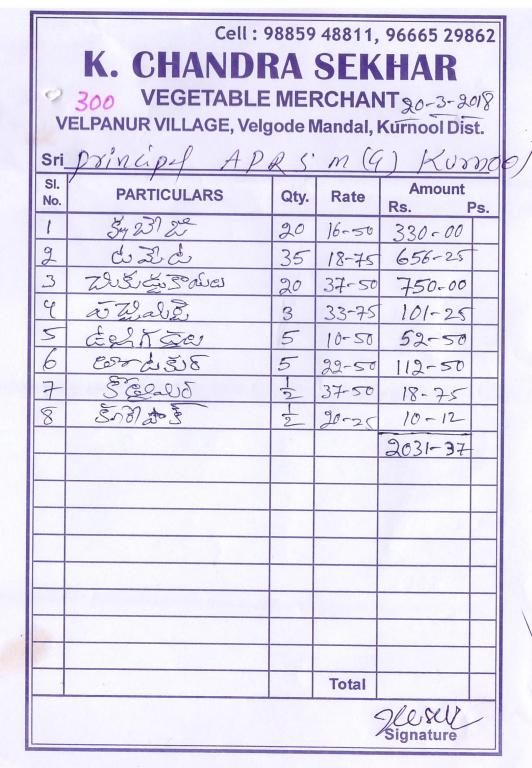 Cell : 98859 48811, 96665 29862
K. CHANDRA SEKHAR
300 VEGETABLE MERCHANT 20-3-2018
VELPANUR VILLAGE, Velgode Mandal, Kurnool Dist.
Sri principal APRS M (G) Kurnool
Sl. No. PARTICULARS Qty. Rate Amount Rs. Ps.
1 క్యాబేజీ 20 16-50 330-00
2 టమేట 35 18-75 656-25
3 చికుడుకాయలు 20 37-50 750-00
4 పచ్చిమిర్చి 3 33-75 101-25
5 5 10-50 52-50
6 తోటకుర 5 22-50 112-50
7 కొత్తిమీర 1/2 37-50 18-75
8 కరేపాక్ 1/2 20-25 10-12
2031-37
Total
Signature